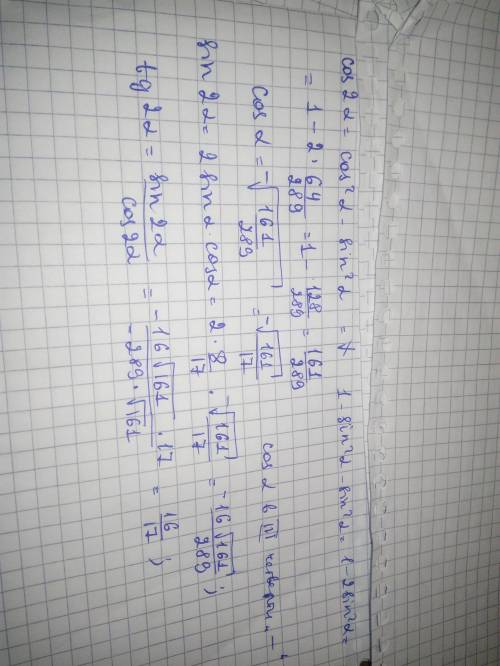 cos2α = cos²α - sin²α = 1 - sin²α sin²α = 1 - 2sin²α =
= 1 - 2 · 64/289 = 1 - 128/289 = 161/289
cosα = -√161/289 = -√161/17 cosα в III четверти "-"
sin2α = 2sinα·cosα = 2 · 8/17 · -√161/17 = -16√161/289;
tg2α = sin2α/cos2α = -16√161 · 17/-289·√161 = 16/17;